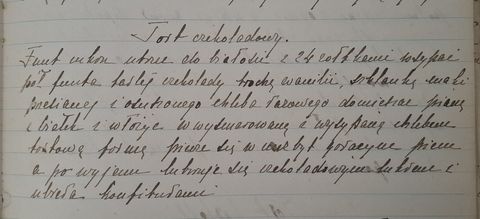 Tort czekoladowy.
Funt cukru utrzeć do białości z 24 żółtkami wsypać
pół funta tartej czekolady trochę wanilii, szklankę mąki
przesianej i osuszonego chleba razowego domieszać pianę
z białek i włożyć w wysmarowaną i wysypaną chlebem
tortową formę piecze się w gorącym piecu
a po wyjęciu lukruje się czekoladowym lukrem i
ubiera konfiturami